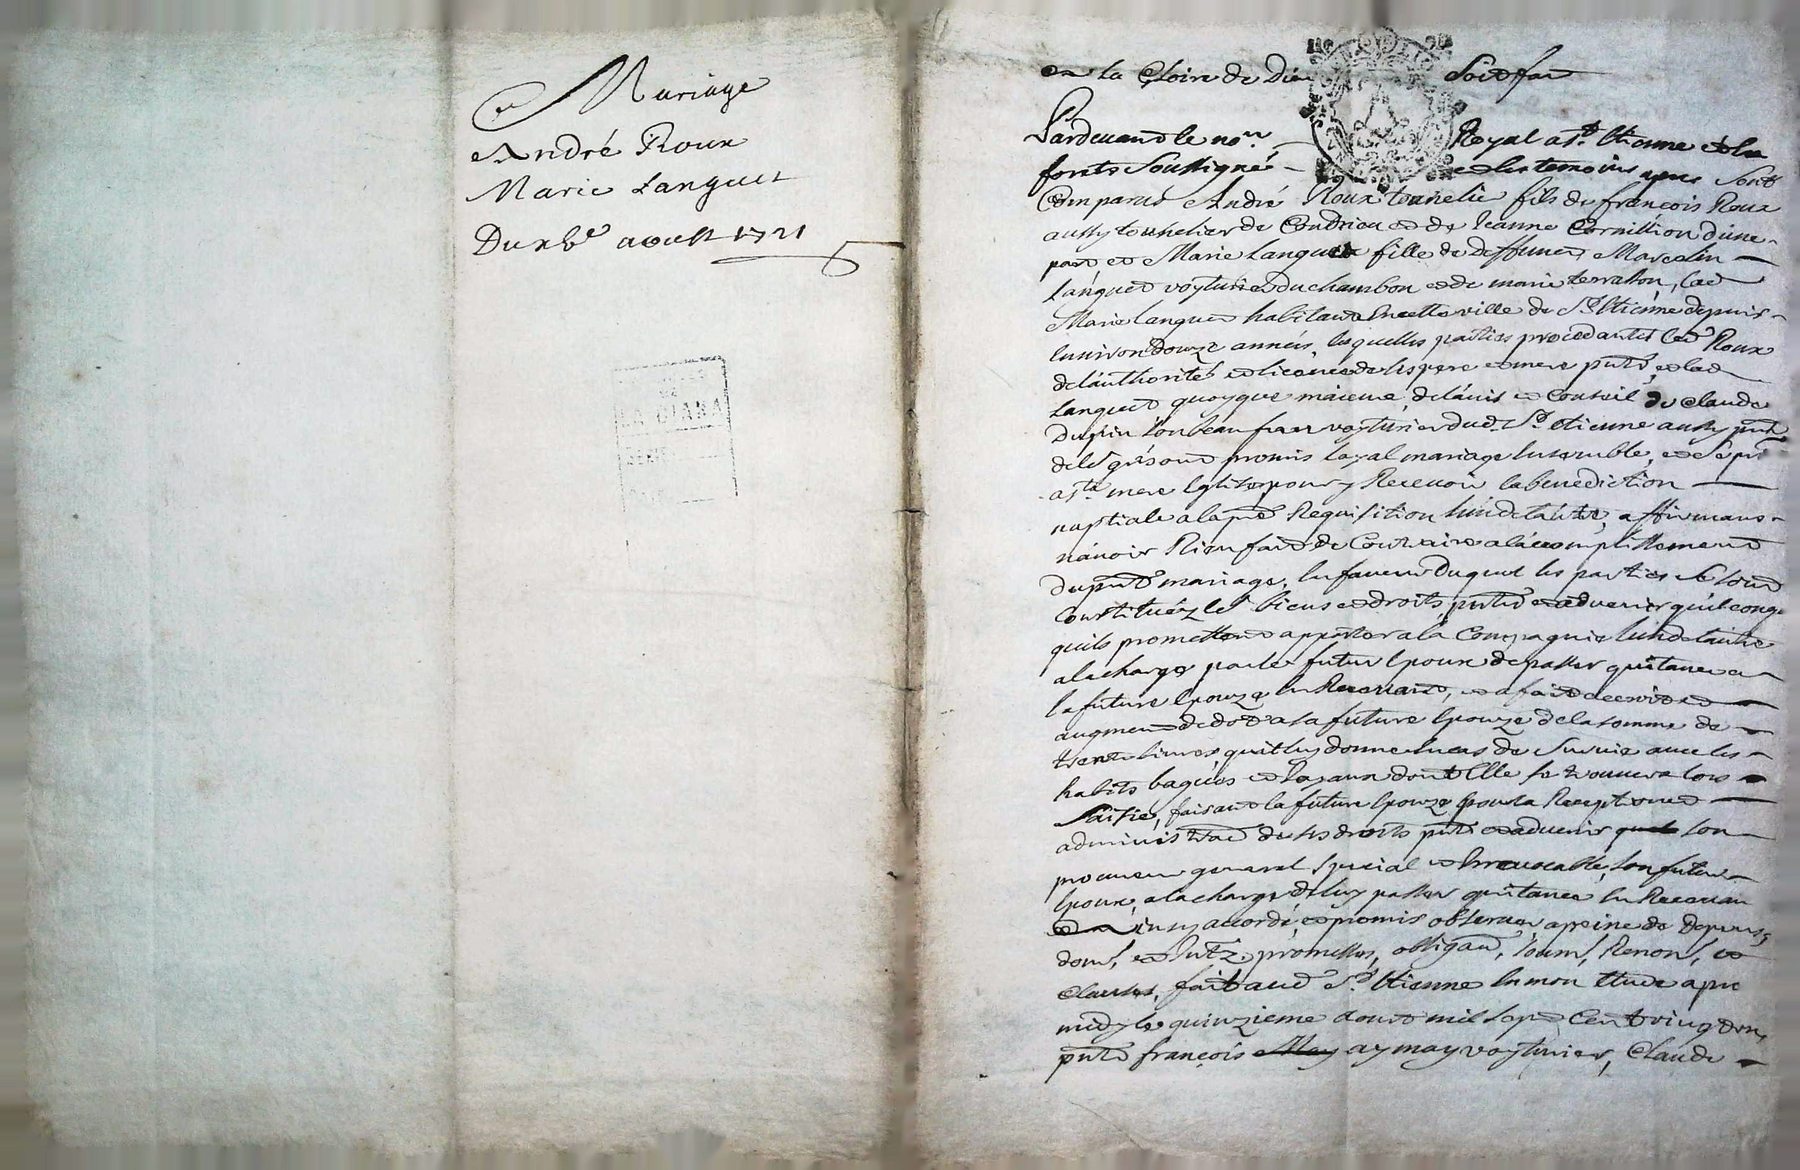 Mariage
André Roux
Marie Languet
Du xve aoust 1721
LA DIANA
a la Gloire de Dieu Soit fait
Pardevant le nore Royal a St Etienne et la
forets Soussigné et les temoins apres Sont
Comparus André Roux tonnelie fils de françois Roux
aussy tonnelier de Condrieu et de Jeanne Cornillion d'une
part et Marie Languet fille de deffunct Marcelin
Languet voyturier du chambon et de marie terrasson, lad
Marie Languet habitante En cette ville de St Etienne depuis
Environ douze années, lesquelles parties procedantes led Roux
de l'authorité et licence de ses pere et mere pnts, et lad
Languet quoyque majeure, de l'avis et Conseil de Claude
Dupin son beau frere voyturier dud. St Etienne aussy pnt
de leur gré sont promis Loyal mariage Ensemble, et Se pnter
a ste mere Eglise pour y Recevoir la benediction
nuptiale a la pre Requisition L'un de l'autre, affirmans
n'avoir Rien fait de Contraire a l'accomplissement
du pnt mariage, En faveur Duquel les parties Se Sont
Constituéz les biens et droits pnts et advenir quelconq
quils promettent apporter a la Compagnie L'un de l'autre
a la charge par le futur Epoux de passer quitance a
la future Epouze En Recevant, et a fait
augment de dot a la future Epouze de la somme de
trente livres qu'il luy donne En cas de Survie avec les
habits bagues et Joyaux dont Elle se trouvera lors
Saisie, faisant la future Epouze pour la Reception et
administraon de ses droits pnts et advenir son
procureur general Special et Irrevocable, Son futur
Epoux, a la charge de luy passer quitance En Recevan
Ainsy accordé, et promis observer a peine de Depens,
dom, et Intz. promesses, obligaon, Soum, Renon, et
Clauses, fait aud St. Etienne En mon Etude apres
midy le quinzieme aoust mil Sept Cent vingt un,
pnts françois aymay voyturier, Claude